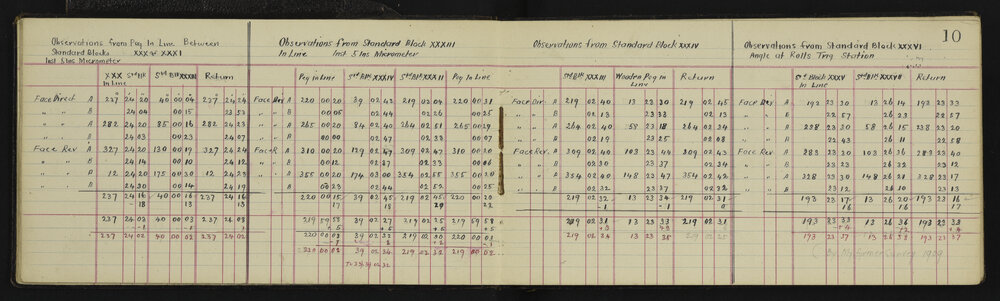 10
Observations from Peg In Line Between
Standard Blocks XXX & XXXI
Inst 5 Ins Micrometer
Observations from Standard Block XXXIII
In Line Inst 5 Ins Micrometer
Observations from Standard Block XXXIV
Observations from Standard Block XXXVI
Angle at Rolls Trig Station
XXX In Line St'd Blk XXXIII Return
Peg in Line St'd Blk XXXIV St'd Blk XXXII Peg In Line
St'd Blk XXXIII Wooden Peg in Line Return
St'd Block XXXV In Line St'd Blk XXXVII Return
Face Direct A 237 24 20 40 00 04 237 24 24 Face Dir A 220 00 20 39 02 42 219 02 04 220 40 31 Face Dir A 219 02 40 13 23 30 219 02 45 Face Dir A 193 23 30 13 26 14 193 23 33
" " B 24 04 00 15 23 53 " " B 00 05 02 44 02 26 00 25 " " B 02 13 23 33 02 13 " " B 22 56 26 23 22 57
" " A 282 24 20 85 00 16 282 24 23 " " A 265 00 20 84 02 40 264 02 51 265 00 29 " " A 264 02 40 58 23 18 264 02 34 " " A 238 23 30 58 26 15 238 23 20
" " B 24 03 00 23 24 07 " " B 00 00 02 47 02 33 00 07 " " B 02 19 23 25 02 08 " " B 22 43 26 11 22 58
Face Rev A 327 24 20 130 00 19 327 24 24 Face R A 310 00 20 129 02 47 309 02 47 310 00 20 Face Rev A 309 02 40 103 23 44 309 02 43 Face Rev A 283 23 20 103 26 36 283 23 40
" " B 24 14 00 10 24 12 " " B 00 12 02 37 02 33 00 06 " " B 02 30 23 37 02 34 " " B 23 20 26 32 23 12
" " A 12 24 20 175 00 30 12 24 23 " " A 355 00 20 174 03 00 354 02 55 355 00 20 " " A 354 02 40 148 23 47 354 02 42 " " A 328 23 30 148 26 21 328 23 17
" " B 24 30 00 14 24 19 " " B 00 23 02 44 02 52 00 25 " " B 02 32 23 37 02 32 " " B 23 12 26 10 23 13
237 24 16 40 00 16 237 24 16 220 00 15 39 02 45 219 02 45 220 00 20 219 02 32 13 23 34 219 02 31 193 23 17 13 26 20 193 23 16
-13 13 13 17 18 20 22 -1 -1 0 16 16 17
237 24 03 40 00 03 237 24 03 219 59 58 39 02 27 219 02 25 219 59 58 219 02 31 13 23 33 219 02 31 193 23 33 13 26 36 193 23 33
237 24 02 40 00 02 237 24 02
220 00 02 39 02 32 219 02 30 220 00 01 219 02 24 13 23 26 219 02 25 193 23 37 13 26 38 193 23 37
220 00 02 39 02 24 219 02 32 219 00 02